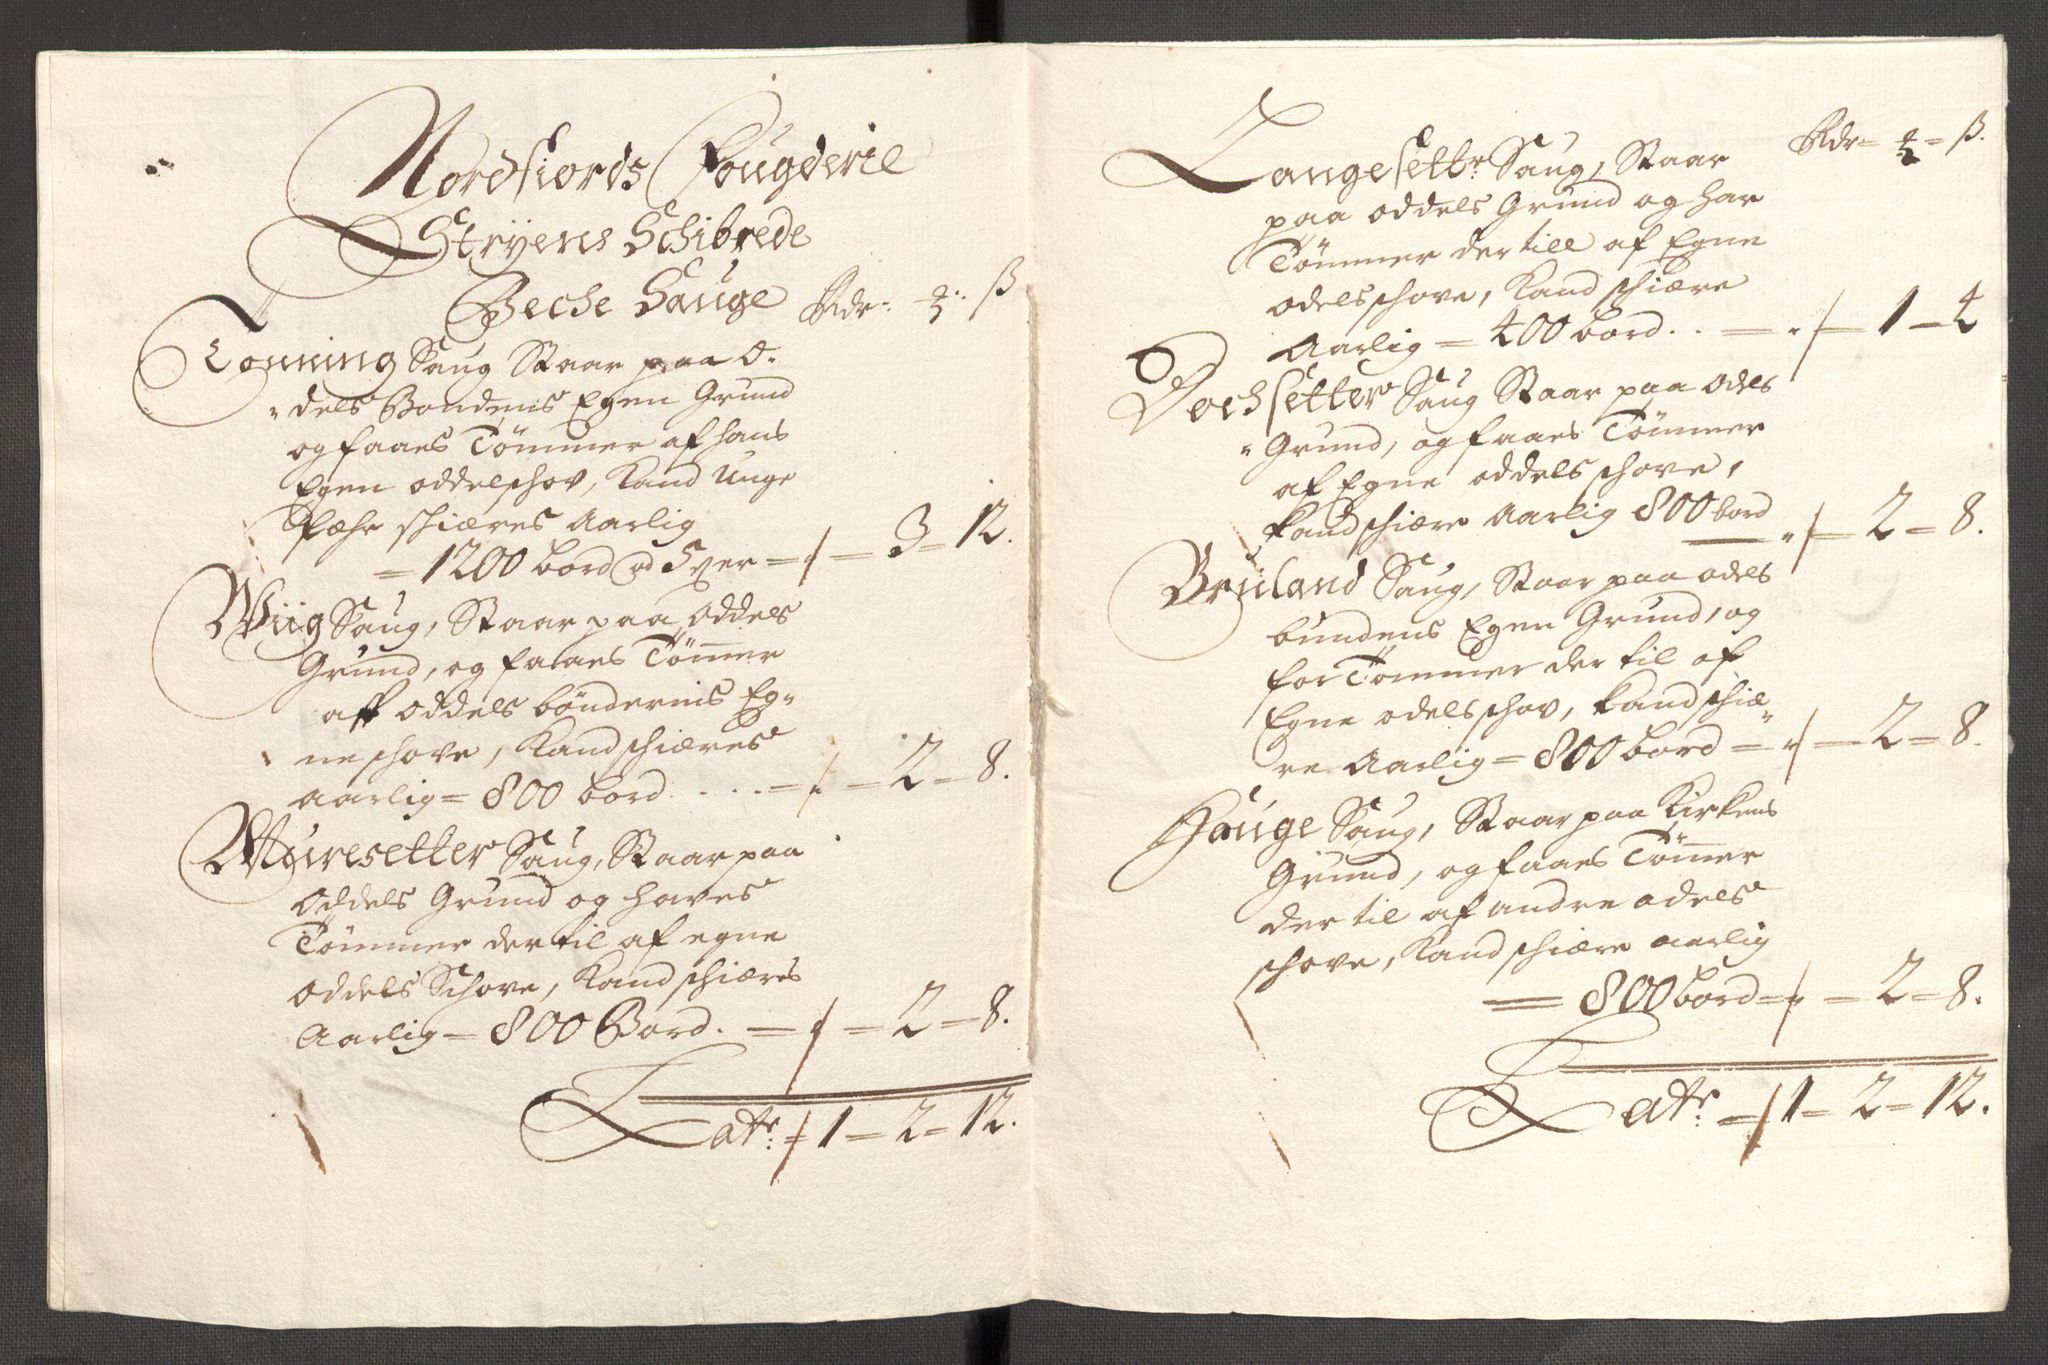 Nordfiords Fougderie
Stryens Schibrede
Beche Sauge Rdr: ß
Tonning Saug Staar paa O-
dels Bondens Egen Grund
og faaes Tömmer af hans
Egen oddelschov, Kand Unge
fæhr schiæres Aarlig
= 1200 bord = 3 = 12.
Wiig Saug, Staar paa Oddels
Grund, og faaes Tömer
aff Oddels bönderns Eg-
ne schove, Kand schiæres
aarlig = 800 bord . . . . = 2 = 8.
Muresetter Saug, Staar paa
Oddels Grund og haves
Tömmer der til af egne
Oddels Schove, Kand schiæres
Aarlig = 800 Bord. = 2 = 8.
Latr: = 1 = 2 = 12.
Langesettr Saug, Staar Rdr = ß.
paa oddels Grund og har
Tömmer der till af Egne
odels schove, Kand schiære
Aarlig = 400 bord . . = 1 = 4
Dochsetter Saug Staar paa Odels
Grund, og faaes Tömmer
af Egne oddels schove,
kand schiære Aarlig 800 bord
= 2 = 8.
Bruland Saug, Staar paa odels
bundens Egen Grund, og
for Tömmer der til af
Egne odels schov, kand schiæ-
re Aarlig = 800 bord = 2 = 8.
Hauge Saug, Staar paa Kirkens
Grund, og faaes Tömer
der til af andre odels
schove, Kand schiære aarlig
= 800 bord = 2 = 8.
Latr: = 1 = 2 = 12.